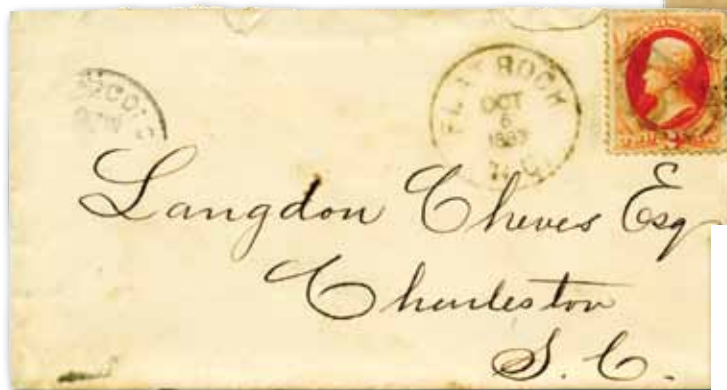 FLAT ROCK
OCT
6
1883
N.C.
Langdon Cheves Esq
Charleston
S. C.